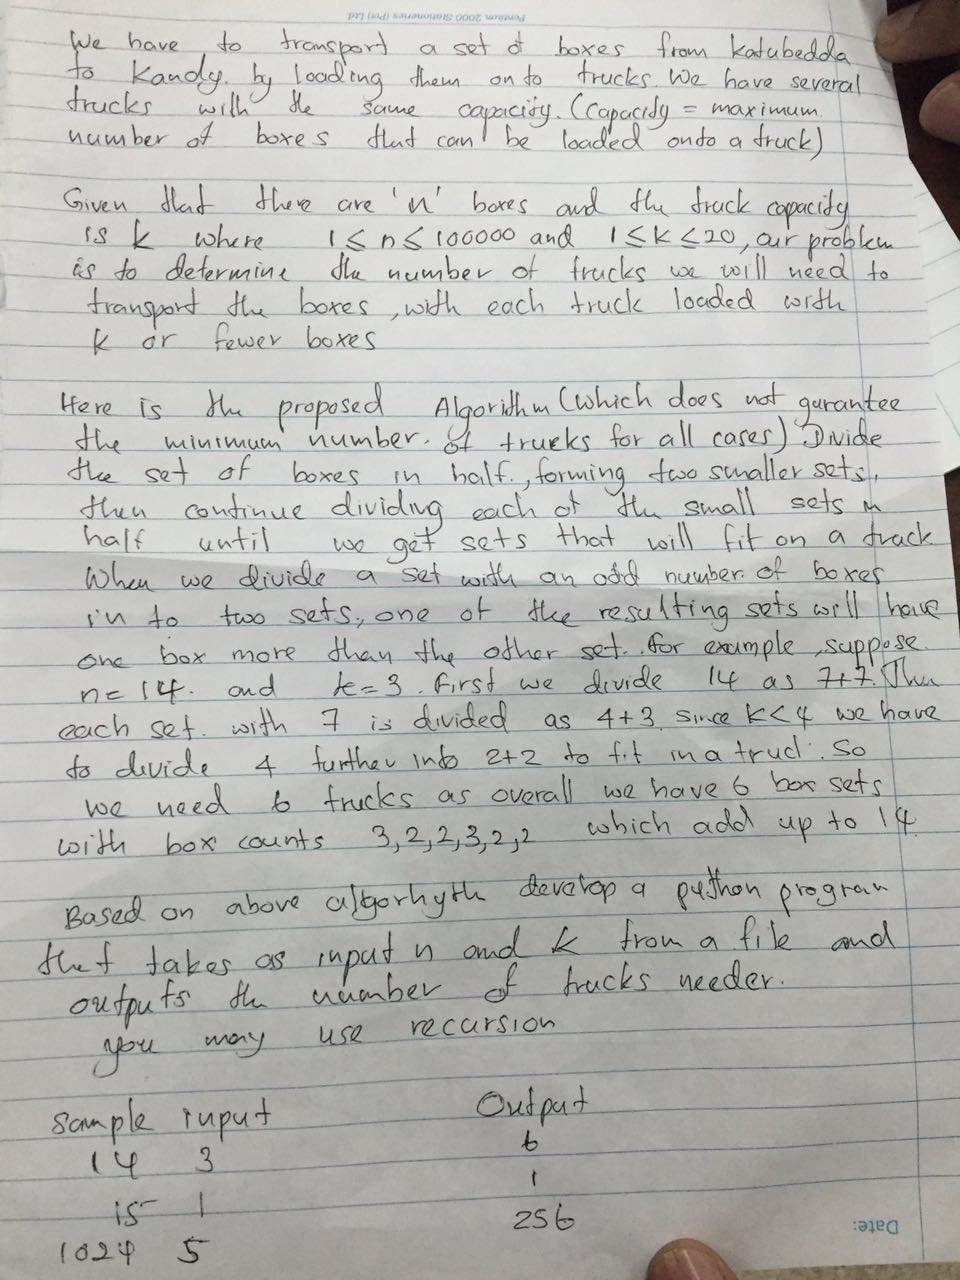 Pentium 2000 Stationeries (Pvt) Ltd.
We have to transport a set of boxes from Katubedda
to Kandy. by loading them on to trucks. We have several
trucks with the same capacity. (Capacity = maximum
number of boxes that can be loaded onto a truck)
Given that there are 'n' boxes and the truck capacity
is k where 1 ≤ n ≤ 100000 and 1 ≤ k ≤ 20, our problem
is to determine the number of trucks we will need to
transport the boxes, with each truck loaded with
k or fewer boxes
Here is the proposed Algorithm (which does not garantee
the minimum number. of trucks for all cases) Divide
the set of boxes in half., forming two smaller sets,
then continue dividing each of the small sets in
half until we get sets that will fit on a track
When we divide a set with an odd number of boxes
in to two sets, one of the resulting sets will have
one box more than the other set. for example, suppose
n = 14. and k = 3. first we divide 14 as 7+7. Then
each set. with 7 is divided as 4+3. since k<4 we have
to divide 4 further into 2+2 to fit in a truck. So
we need 6 trucks as overall we have 6 box sets
with box counts 3,2,2,3,2,2 which add up to 14
Based on above algorhyth develop a python program
that takes as input n and k from a file and
outputs the number of trucks needer.
you may use recursion
Sample input Output
14 3 6
15 1 1
1024 5 256
Date: